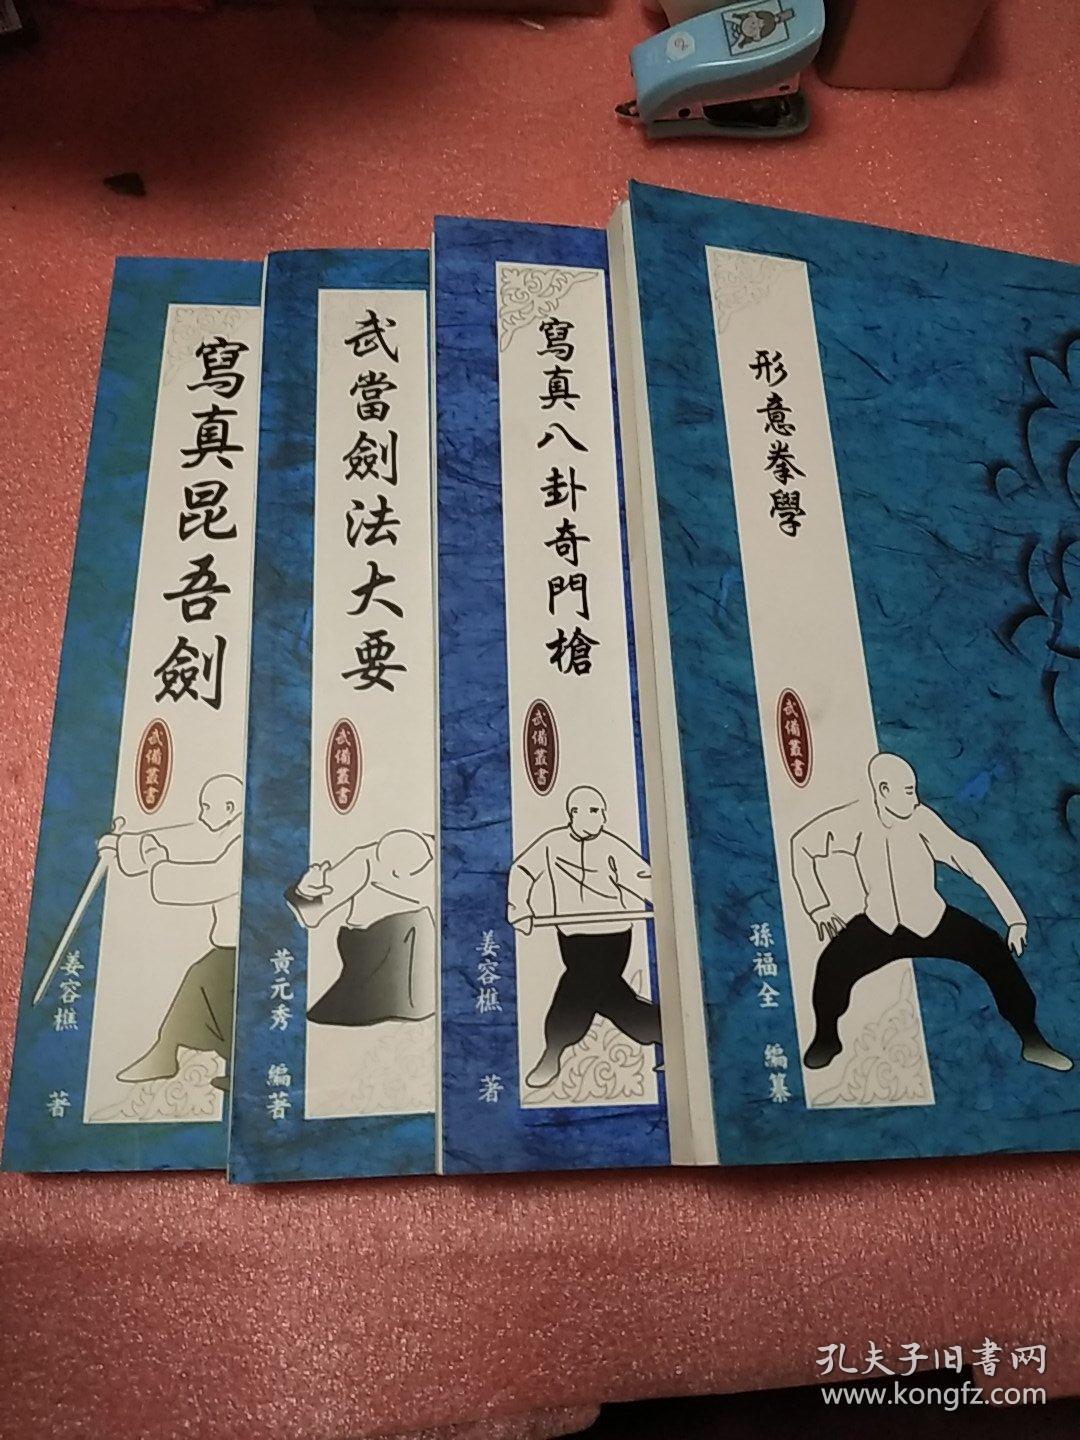 寫真昆吾劍
武備叢書
姜容樵 著
武當劍法大要
武備叢書
黃元秀 編著
寫真八卦奇門槍
武備叢書
姜容樵 著
形意拳學
武備叢書
孫福全 編纂
孔夫子旧書网
www.kongfz.com